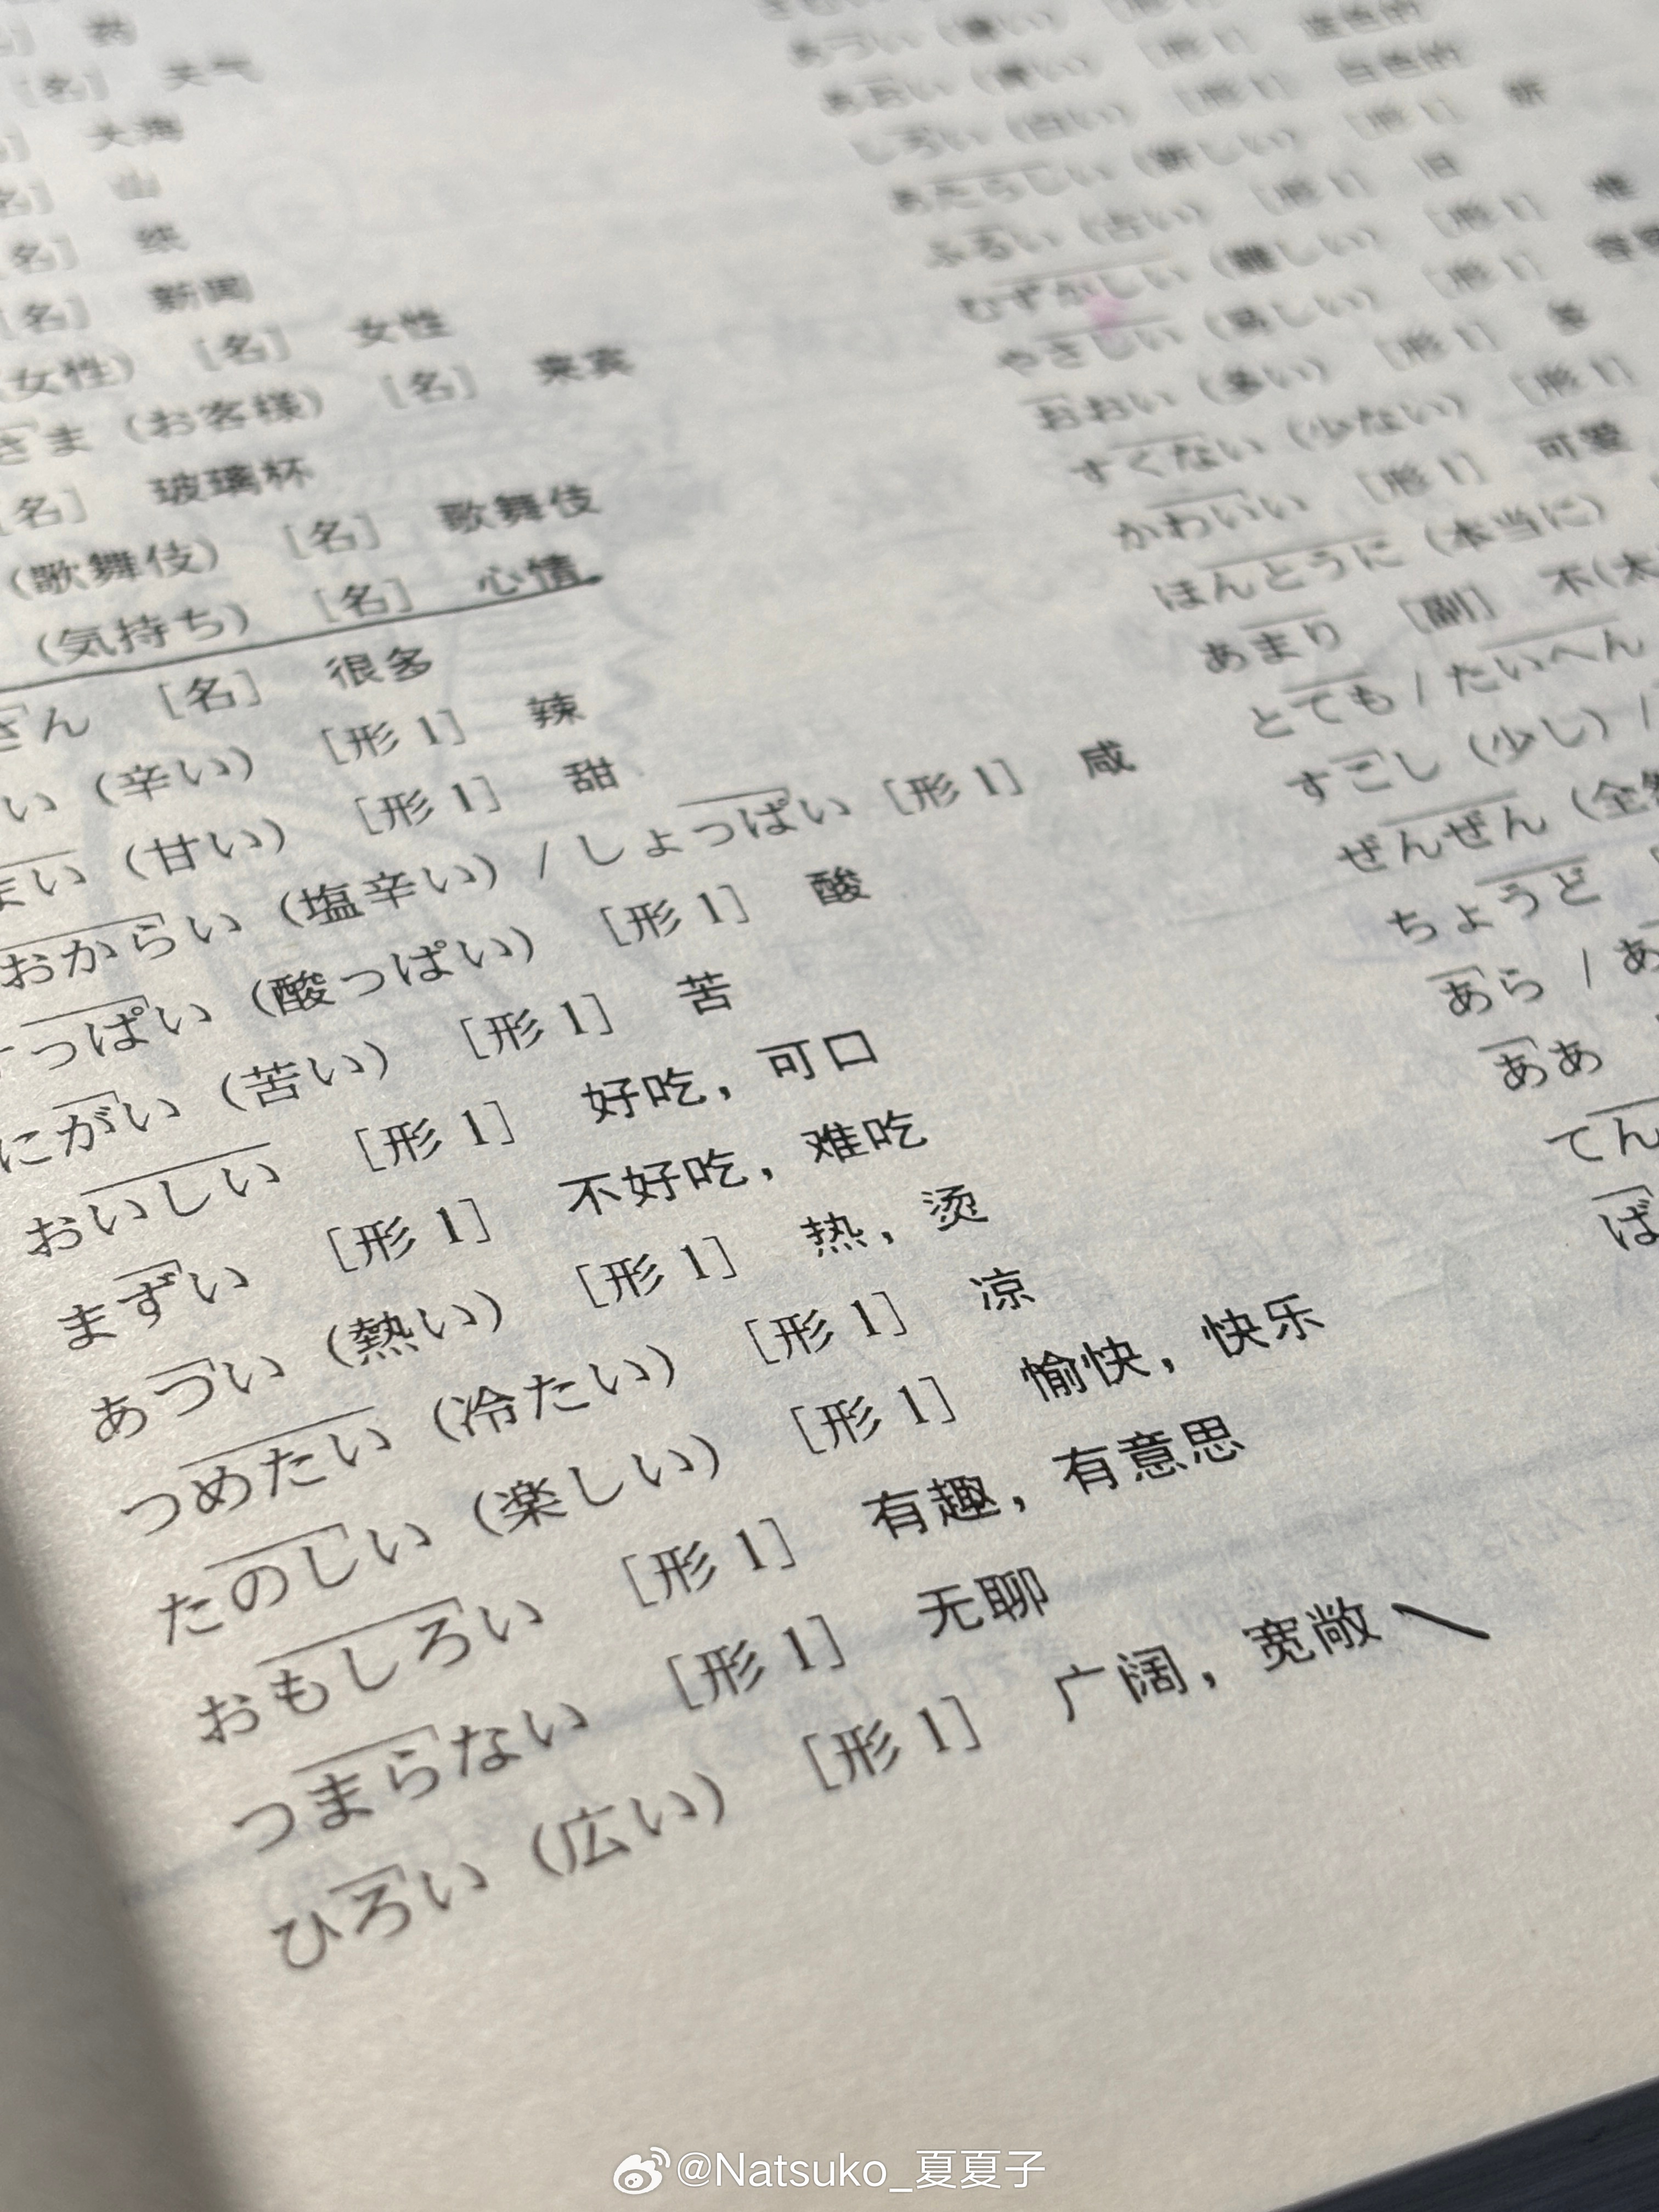 [名] 天气
大海
山
名] 纸
[名] 新闻
(女性) [名] 女性
さま (お客様) [名] 来宾
[名] 玻璃杯
(歌舞伎) [名] 歌舞伎
(気持ち) [名] 心情
さん [名] 很多
い (辛い) [形1] 辣
まい (甘い) [形1] 甜
おからい (塩辛い) / しょっぱい [形1] 咸
っぱい (酸っぱい) [形1] 酸
にがい (苦い) [形1] 苦
おいしい [形1] 好吃，可口
まずい [形1] 不好吃，难吃
あつい (熱い) [形1] 热，烫
つめたい (冷たい) [形1] 凉
たのしい (楽しい) [形1] 愉快，快乐
おもしろい [形1] 有趣，有意思
つまらない [形1] 无聊
ひろい (広い) [形1] 广阔，宽敞
あおい (青い) [形1]
しろい (白い) [形1] 白色的
あたらしい (新しい) [形1] 新
ふるい (古い) [形1] 旧
むずかしい (難しい) [形1] 难
やさしい (易しい) [形1]
おおい (多い) [形1] 多
すくない (少ない) [形1]
かわいい [形1] 可爱
ほんとうに (本当に)
あまり [副] 不(太
とても / たいへん
すこし (少し) /
ぜんぜん (全然
ちょうど
あら / あ
ああ
てん
ば
@Natsuko_夏夏子